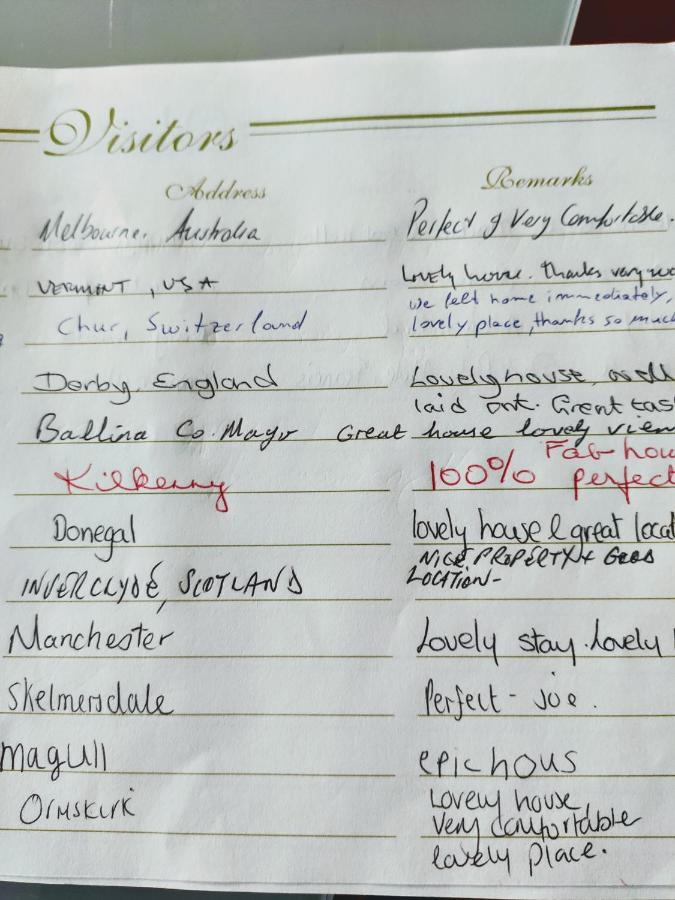 Visitors
Address Remarks
Melbourne. Australia Perfect & Very Comfortable.
VERMONT, USA Lovely house. thanks very
we felt home immediately,
Chur, Switzerland lovely place, thanks so much
Derby England Lovely house, well
laid out. Great
Ballina Co. Mayo Great house lovely view
Fab
Kilkenny 100% perfect
Donegal lovely house & great
NICE PROPERTY + GOOD
INVERCLYDE, SCOTLAND LOCATION-
Manchester Lovely stay. lovely
Skelmersdale Perfect - Joe.
Magull epic hous
Ormskirk Lovely house
very comfortable
lovely place.